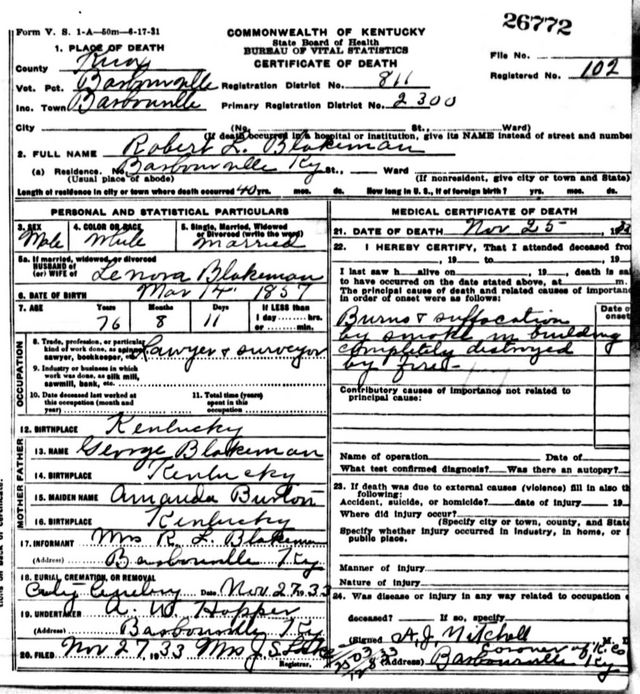 Form V. S. 1-A—50m—6-17-31
26772
COMMONWEALTH OF KENTUCKY
State Board of Health
BUREAU OF VITAL STATISTICS
CERTIFICATE OF DEATH
1. PLACE OF DEATH
File No.
County Knox
Registered No. 102
Vot. Pct. Barbourville Registration District No. 811
Inc. Town Barbourville Primary Registration District No. 2300
City (No. St., Ward)
(If death occurred in a hospital or institution, give its NAME instead of street and number
2. FULL NAME Robert L. Blakeman
(a) Residence. No Barbourville Ky St., Ward
(Usual place of abode) (If nonresident, give city or town and State)
Length of residence in city or town where death occurred 40 yrs. mos. ds. How long in U. S., if of foreign birth? yrs. mos. ds.
PERSONAL AND STATISTICAL PARTICULARS
3. SEX Male
4. COLOR OR RACE
5. Single, Married, Widowed
or Divorced (write the word)
Married
5a. If married, widowed or divorced
HUSBAND of
(or) WIFE of Lenora Blakeman
6. DATE OF BIRTH Mar 14 1857
7. AGE Years Months Days If LESS than
1 day hrs.
76 8 11 or min.
OCCUPATION
8. Trade, profession, or particular
kind of work done, as spinner,
sawyer, bookkeeper, etc. Lawyer & surveyor
9. Industry or business in which
work was done, as silk mill,
sawmill, bank, etc.
10. Date deceased last worked at
this occupation (month and
year)
11. Total time (years)
spent in this
occupation
12. BIRTHPLACE Kentucky
FATHER
13. NAME George Blakeman
14. BIRTHPLACE Kentucky
MOTHER
15. MAIDEN NAME Amanda Burton
16. BIRTHPLACE Kentucky
17. INFORMANT Mrs R. L. Blakeman
(Address) Barbourville Ky
18. BURIAL, CREMATION, OR REMOVAL
City Cemetery Date Nov 27 1933
19. UNDERTAKER A. W. Hopper
(Address) Barbourville Ky
20. FILED Nov 27, 1933 Mrs J. S.
Registrar.
MEDICAL CERTIFICATE OF DEATH
21. DATE OF DEATH Nov 25, 19
22. I HEREBY CERTIFY, That I attended deceased from
, 19 to , 19
I last saw h alive on , 19 , death is sa
to have occurred on the date stated above, at m.
The principal cause of death and related causes of importance
in order of onset were as follows:
Date of
onset
Burns & suffocation
by smoke in building
completely distroyed
by fire-
Contributory causes of importance not related to
principal cause:
Name of operation Date of
What test confirmed diagnosis? Was there an autopsy?
23. If death was due to external causes (violence) fill in also th
following:
Accident, suicide, or homicide? date of injury 19
Where did injury occur?
(Specify city or town, county, and State
Specify whether injury occurred in industry, in home, or i
public place.
Manner of injury
Nature of injury
24. Was disease or injury in any way related to occupation
deceased? If so, specify
(Signed A. J. Mitchell M. D
Coroner of K. Co
(Address) Barbourville Ky